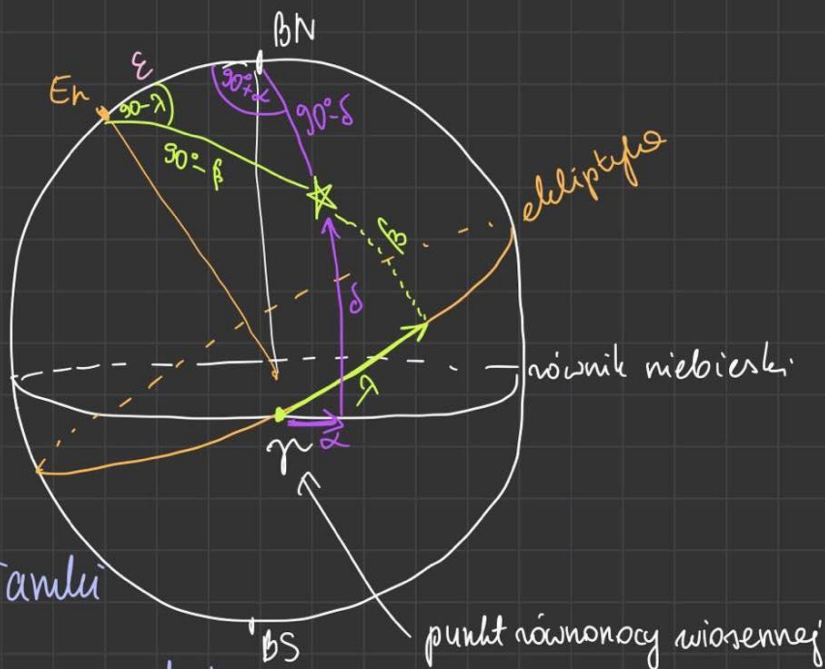 BN
ε
En
90-λ
90°+α
90°-δ
90°-β
ekliptyka
β
δ
równik niebieski
λ
α
γ
BS
punkt równonocy wiosennej